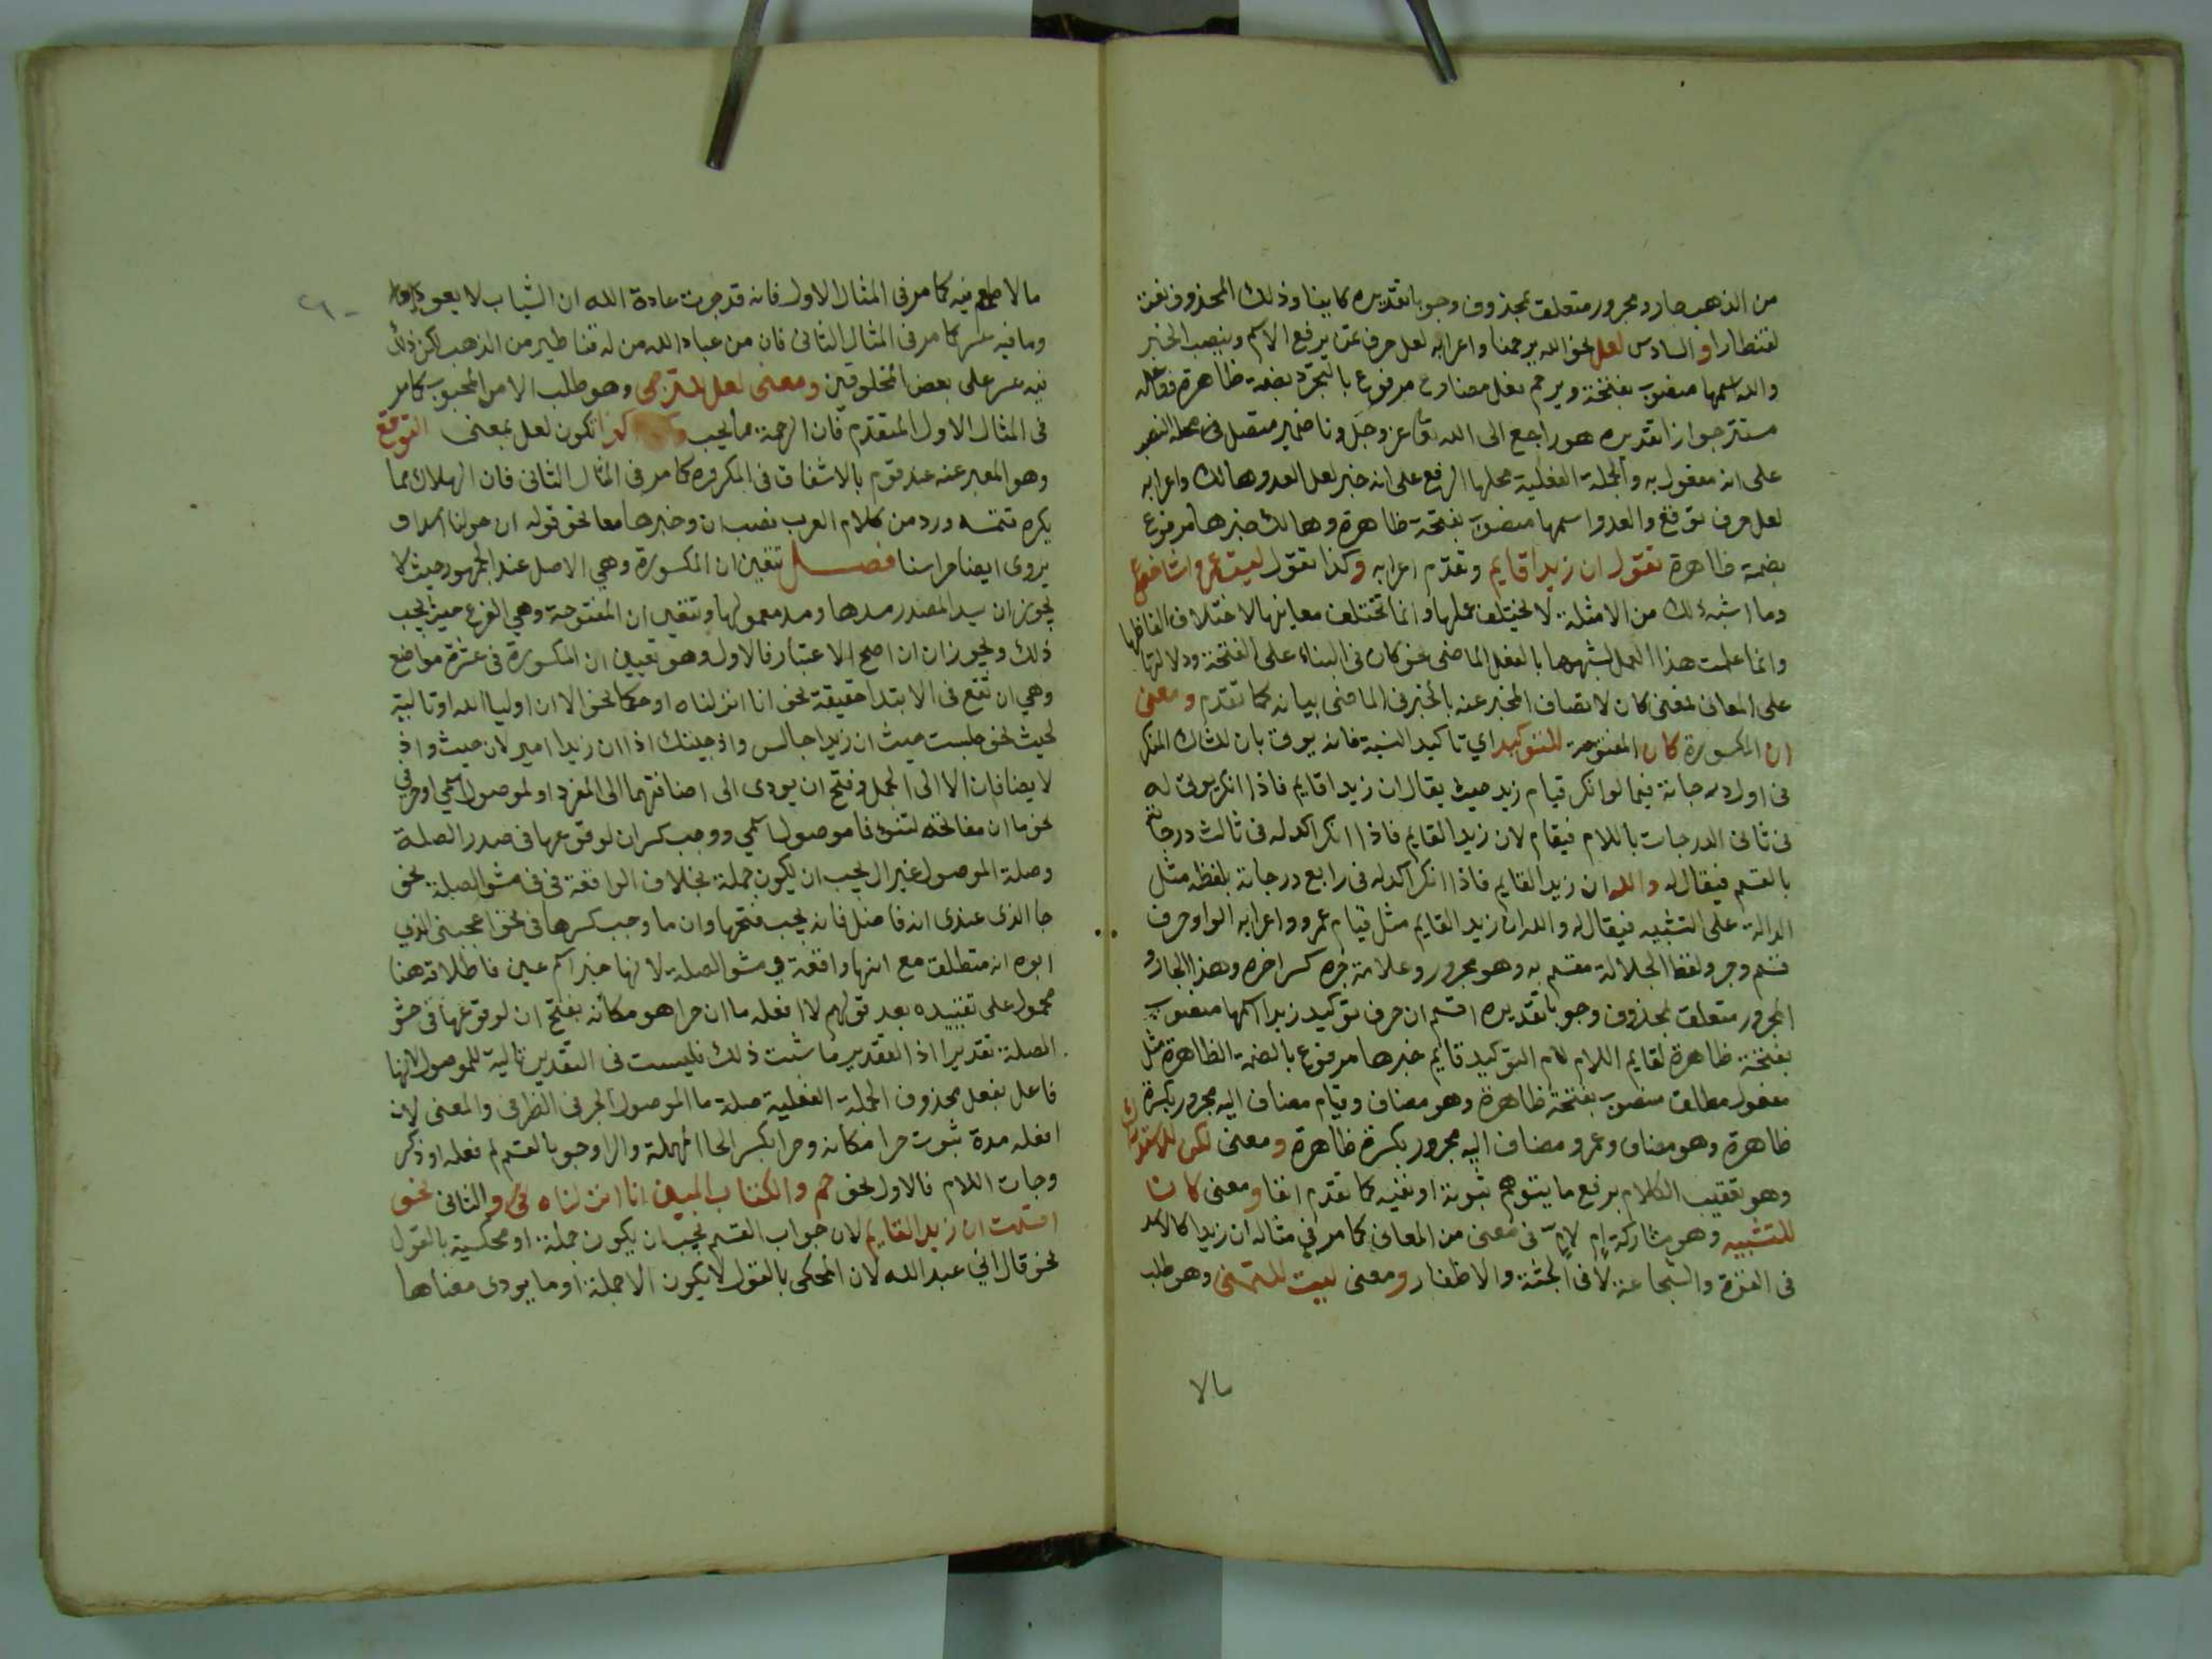 من الذهب جار ومجرور متعلق بمحذوف وجوبا تقديره كما بينا وذلك المحذوف نعت
لقنطارا و السادس لعل نحو الله يرحمنا واعرابه لعل حرف يرفع الاسم وينصب الخبر
والله اسمها منصوب بفتحة ويرحم فعل مضارع مرفوع بالتجرد بضمة ظاهرة وفاعله
مستتر جوازا تقديره هو راجع الى الله تعا عز وجل ونا ضمير متصل في محل النصب
على انه مفعول به والجملة الفعلية محلها الرفع على انه خبر لعل العدو هالك واعرابه
لعل حرف توقع والعدو اسمها منصوب بفتحة ظاهرة وهالك خبرها مرفوع
بضمة ظاهرة تقول ان زيدا قايم وتقدم اعرابه وكذا تقول ليت عمرا شاخص
وما اشبه ذلك من الامثلة لا يختلف عملها وانما تختلف معانيها لاختلاف الفاظها
وانما عملت هذا العمل لشبهها بالفعل الماضي نحو كان في البناء على الفتحة ودلالتها
على المعاني لمعنى كان لاتصاف المخبر عنه بالخبر في الماضي بيانه كما تقدم ومعنى
ان المكسورة كان المفتوحة للتوكيد اي تاكيد النسبة فانه يوتى بان للشاك المنكر
في اول درجاته فيما لو انكر قيام زيد حيث يقال ان زيدا قايم فاذا انكر يوتى له
في ثاني الدرجات باللام فيقام لان زيد القايم فاذا انكر اكد له في ثالث درجاته
بالقسم فيقال له والله ان زيد القايم فاذا انكر اكد له في رابع درجاته بلفظه مثل
الدالة على التشبيه فيقال له والله ان زيد القايم مثل قيام عمرو واعرابه الواو حرف
قسم وجر ولفظ الجلالة مقسم به وهو مجرور وعلامة جره كسر اخره وهذا الجار و
المجرور متعلق بمحذوف وجوبا تقديره اقسم ان حرف توكيد زيدا اسمها منصوب
بفتحة ظاهرة لقايم اللام لام التوكيد قايم خبرها مرفوع بالضمة الظاهرة مثل
مفعول مطلق منصوب بفتحة ظاهرة وهو مضاف وقيام مضاف اليه مجرور بكسرة
ظاهرة وهو مضاف وعمرو مضاف اليه مجرور بكسرة ظاهرة ومعنى لكن للاستدراك
وهو تعقيب الكلام برفع ما يتوهم ثبوته او نفيه كما تقدم انفا ومعنى كان
للتشبيه وهو مشاركة امر لامر في معنى من المعاني كما مر في مثاله ان زيدا كالاسد
في القوة والشجاعة لا في الجثة والاظفار ومعنى ليت للتمني وهو طلب
مالا
ما لا طمع فيه كما مر في المثال الاول فانه قد جرت عادة الله ان الشباب لا يعود
وما فيه عسر كما مر في المثال الثاني فان من عباد الله من له قناطير من الذهب لكن ذلك
فيه عسر على بعض المخلوقين ومعنى لعل للترجي وهو طلب الامر المحبوب كما مر
في المثال الاول المتقدم فان الرحمة مما يحب تكون لعل بمعنى التوقع
وهو المعبر عنه عند قوم بالاشفاق في المكروه كما مر في المثال الثاني فان الهلاك مما
يكره تتمة ورد من كلام العرب نصب ان وخبرها معا نحو قوله ان حولنا اسدا و
يروى ايضا حراسنا فصل تتعين ان المكسورة وهي الاصل عند الجمهور حيث لا
يجوز ان يسد المصدر مسدها ومسد معمولها وتتعين ان المفتوحة وهي الفرع حيث يجب
ذلك ويجوز ان ان اصح الاعتبار فالاول وهو تعيين ان المكسورة في عشرة مواضع
وهي ان تقع في الابتدا حقيقة نحو انا انزلناه او حكما نحو الا ان اوليا الله او تالية
لحيث نحو جلست حيث ان زيدا جالس واذ جيتك اذ ان زيدا امير لان حيث واذ
لا يضافان الا الى الجمل وفتح ان يودى الى اضافتهما الى المفرد او لموصول اسمي او حرفي
نحو ما ان مفاتحه لتنوء فما موصول اسمي ووجب كسر ان لوقوعها في صدر الصلة
وصلة الموصول غير ال يجب ان يكون جملة بخلاف الواقعة في في حشو الصلة نحو
جا الذي عندي انه فاضل فانه يجب فتحها وان ما وجب كسرها في نحو اعجبني الذي
ابوه انه منطلق مع انها واقعة في حشو الصلة لانها خبر اسم عين فاطلاقه هنا
محمول على تقييده بعد قولهم لا افعله ما ان حرا هو مكانه بفتح ان لوقوعها في حشو
الصلة تقديرا اذ التقدير ما ثبت ذلك فليست في التقدير تالية للموصول لانها
فاعل بفعل محذوف الجملة الفعلية صلة ما الموصول الحرفي الظرفي والمعنى لان
افعله مدة ثبوت حرا مكانه وحرا بكسر الحا المهملة والرا وجوبا لقسم لم فعله او ذكر
وجات اللام فالاول نحو حم والكتاب المبين انا انزلناه في والثاني نحو
اقسمت ان زيد القايم لان جواب القسم يجب ان يكون جملة او محكية بالقول
نحو قال اني عبد الله لان المحكي بالقول لا يكون الا جملة او ما يودى معناها